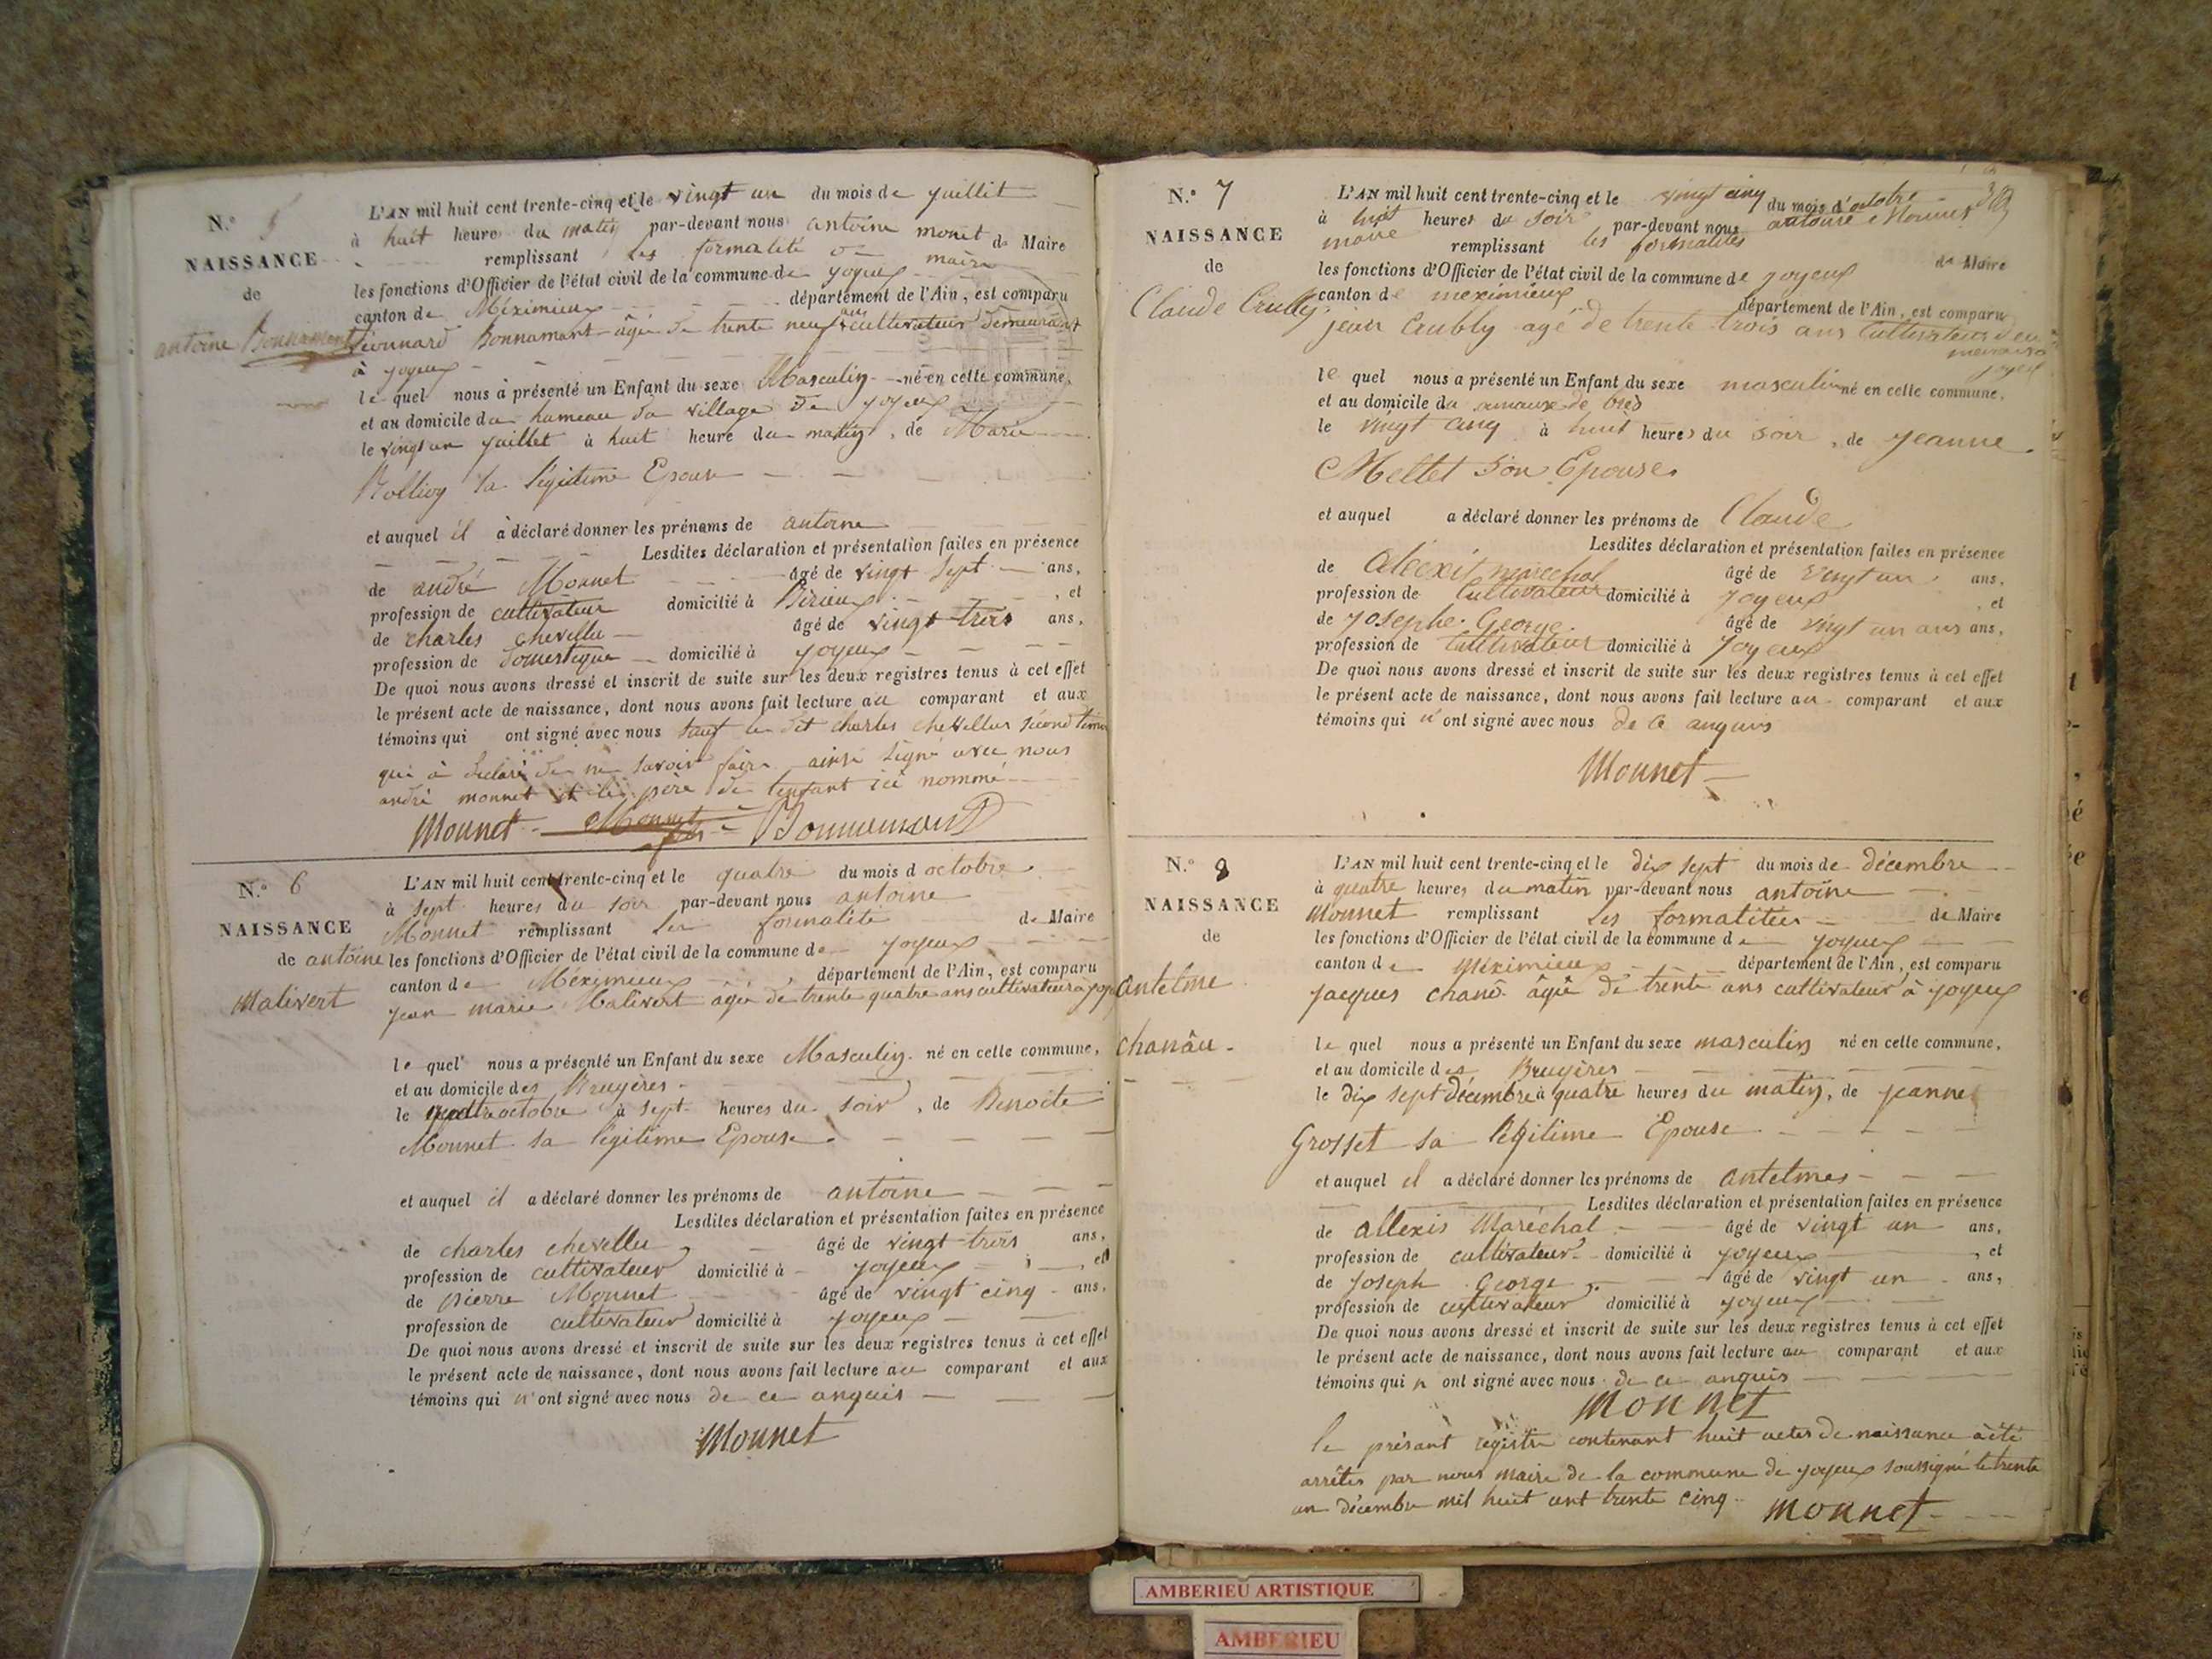 N.º 5
NAISSANCE
de
antoine Bonnamant
L'AN mil huit cent trente-cinq et le vingt un du mois de juillit
à huit heure du matin par-devant nous antoine monet de Maire
remplissant les formalité maire
les fonctions d'Officier de l'état civil de la commune de joyeux
canton de Méximieux département de l'Ain, est comparu
Léonnard Bonnamant âgé de trente neuf ans cultivateur demeurant
à joyeux
le quel nous à présenté un Enfant du sexe Masculin né en cette commune,
et au domicile du hameau du village de joyeux
le vingt un juillet à huit heure du matin, de Marie
sa légitime Epouse
et auquel il à déclaré donner les prénoms de antoine
Lesdites déclaration et présentation faites en présence
de andré Monnet âgé de vingt sept ans,
profession de cultivateur domicilié à Birieux, et
de charles chevellu âgé de vingt trois ans,
profession de domestique domicilié à joyeux
De quoi nous avons dressé et inscrit de suite sur les deux registres tenus à cet effet
le présent acte de naissance, dont nous avons fait lecture au comparant et aux
témoins qui ont signé avec nous sauf le dit charles chevellus second témoin
qui à déclaré de ne savoir faire ainsi signé avec nous
andré monnet et le père de l'enfant ici nommé
Monnet Monnet Bonnemant
N.º 6
NAISSANCE
de antoine
Malivert
L'AN mil huit cent trente-cinq et le quatre du mois d octobre
à sept heures du soir par-devant nous antoine
Monnet remplissant les formalité de Maire
les fonctions d'Officier de l'état civil de la commune de joyeux
canton de Méximieux, département de l'Ain, est comparu
jean marie Malivert âgé de trente quatre ans cultivateur à joyeux
le quel nous a présenté un Enfant du sexe Masculin né en cette commune,
et au domicile des Bruyères
le quattre octobre à sept heures du soir, de Benoite
Monnet sa légitime Epouse
et auquel il a déclaré donner les prénoms de antoine
Lesdites déclaration et présentation faites en présence
de charles chevellu, âgé de vingt trois ans,
profession de cultivateur domicilié à joyeux, et
de pierre Monnet âgé de vingt cinq ans,
profession de cultivateur domicilié à joyeux
De quoi nous avons dressé et inscrit de suite sur les deux registres tenus à cet effet
le présent acte de naissance, dont nous avons fait lecture au comparant et aux
témoins qui n'ont signé avec nous de ce anquis
Monnet
N.º 7
NAISSANCE
de
Claude Crubly
L'AN mil huit cent trente-cinq et le vingt cinq du mois d'octobre
à huit heures du soir par-devant nous antoine Monnet
maire remplissant les formalités de Maire
les fonctions d'Officier de l'état civil de la commune de joyeux
canton de meximieux département de l'Ain, est comparu
jean Crubly agé de trente trois ans Cultivateur
joyeux
le quel nous a présenté un Enfant du sexe masculin né en cette commune,
et au domicile du
le vingt cinq à huit heures du soir, de jeanne
Mettet son Epouse
et auquel a déclaré donner les prénoms de Claude
Lesdites déclaration et présentation faites en présence
de alecxit marechal âgé de vingt un ans,
profession de Cultivateur domicilié à joyeux, et
de josephe George âgé de vingt un ans ans,
profession de Cultivateur domicilié à joyeux
De quoi nous avons dressé et inscrit de suite sur les deux registres tenus à cet effet
le présent acte de naissance, dont nous avons fait lecture au comparant et aux
témoins qui n'ont signé avec nous de ce anquis
Monnet
N.º 8
NAISSANCE
de
antelme
chanâu
L'AN mil huit cent trente-cinq et le dix sept du mois de décembre
à quatre heures du matin par-devant nous antoine
Monnet remplissant les formalitées de Maire
les fonctions d'Officier de l'état civil de la commune de joyeux
canton de Méximieux département de l'Ain, est comparu
jacques chanô âgé de trente ans cultivateur à joyeux
le quel nous a présenté un Enfant du sexe masculin né en cette commune,
et au domicile des Bruyères
le dix sept décembre à quatre heures du matin, de jeanne
Grosset sa légitime Epouse
et auquel il a déclaré donner les prénoms de antelmes
Lesdites déclaration et présentation faites en présence
de allexis Maréchal âgé de vingt un ans,
profession de cultivateur domicilié à joyeux, et
de joseph George âgé de vingt un ans,
profession de cultivateur domicilié à joyeux
De quoi nous avons dressé et inscrit de suite sur les deux registres tenus à cet effet
le présent acte de naissance, dont nous avons fait lecture au comparant et aux
témoins qui n ont signé avec nous de ce anquis
Monnet
le présant registre contenant huit actes de naissance à été
arrêtés par nous maire de la commune de joyeux soussigné le trente
un décembre mil huit cent trente cinq
Monnet
AMBERIEU ARTISTIQUE
AMBERIEU